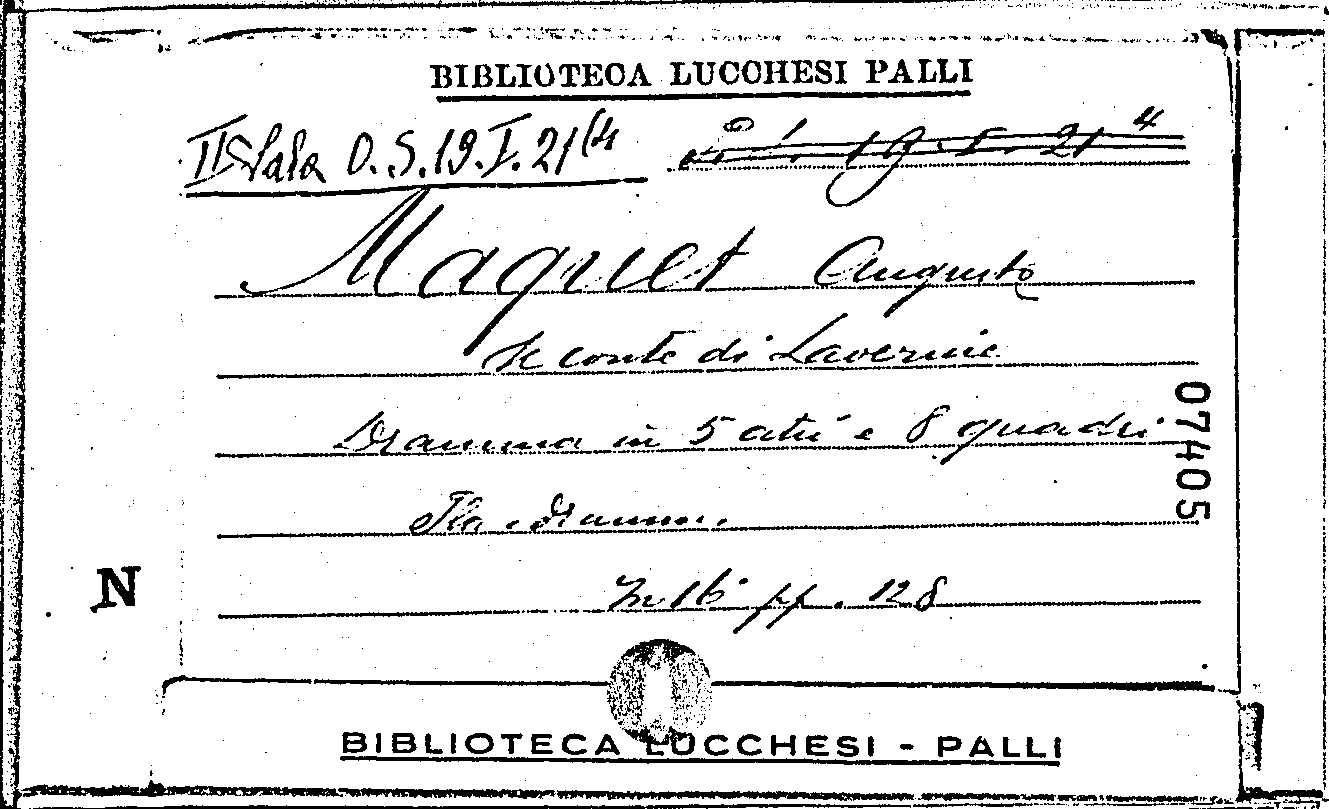 BIBLIOTECA LUCCHESI PALLI
II Sala O.S.19.I.21(4
19. I. 21 4
Maquet Augusto
Il conte di Lavernie
Dramma in 5 atti e 8 quadri
07405
N
In 16° pp. 128
BIBLIOTECA LUCCHESI - PALLI